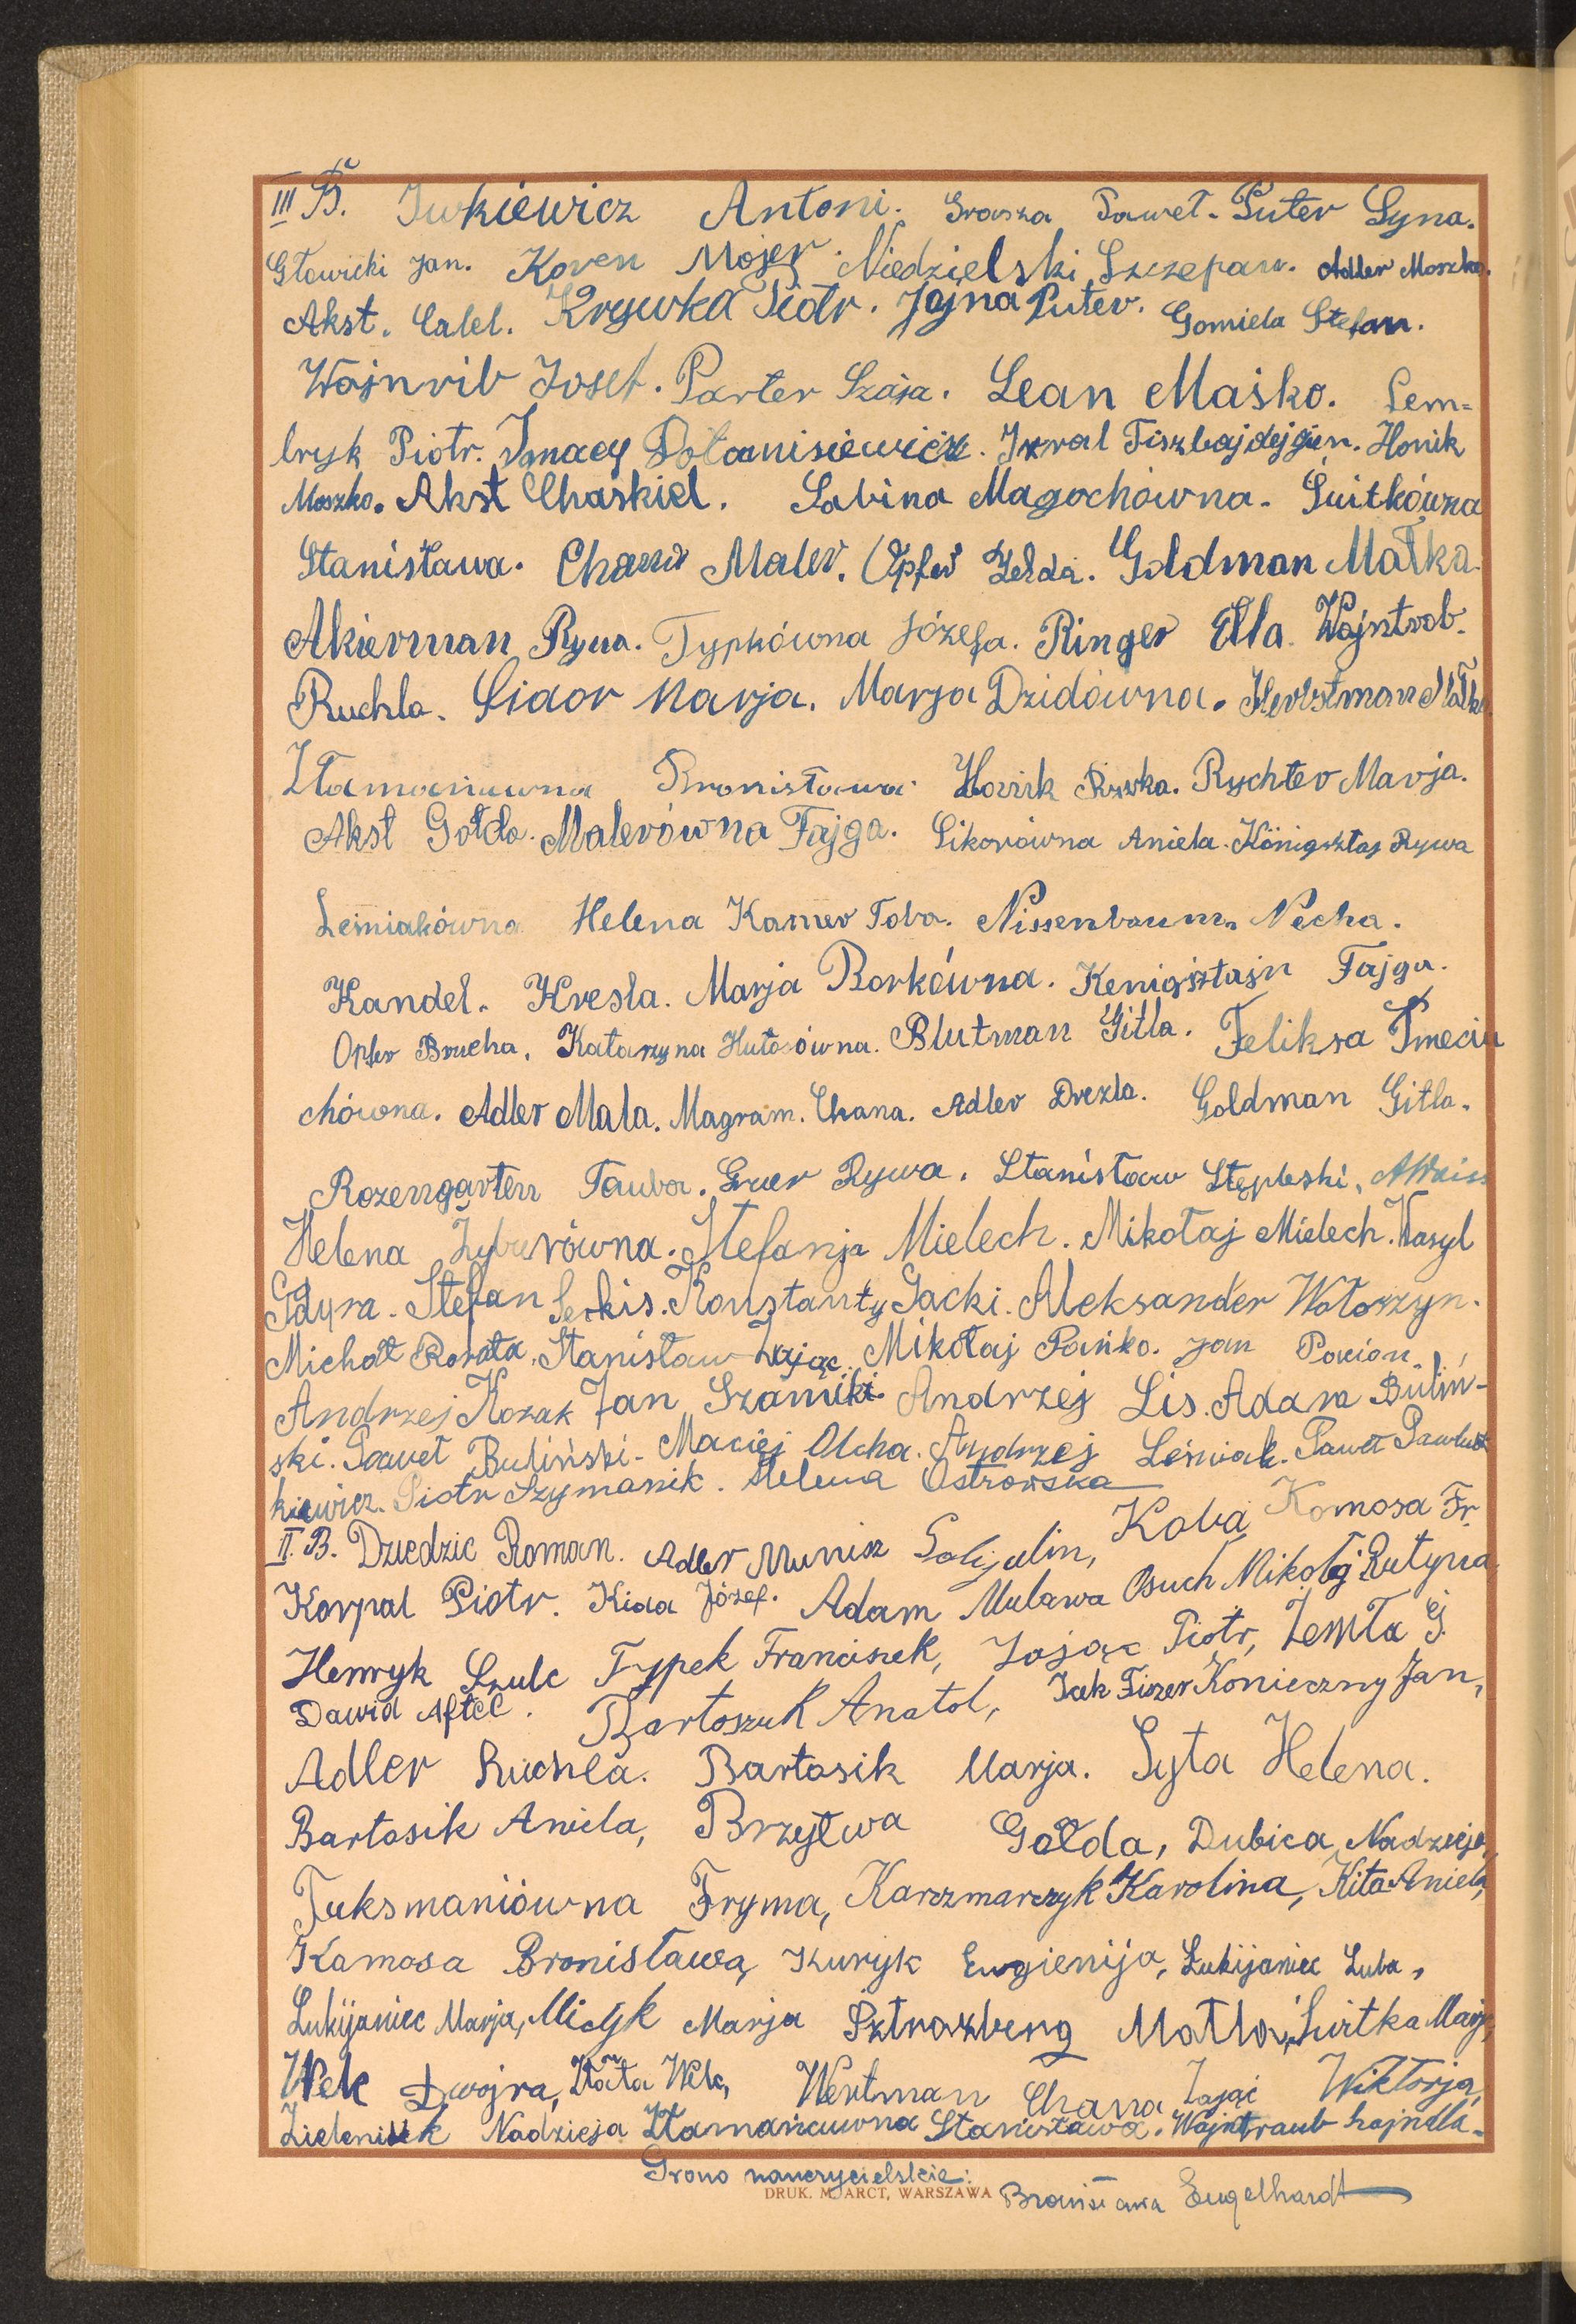 III B. Iwkiewicz Antoni. Grasza Paweł. Puter Syna.
Głowicki Jan. Koren Mojer. Niedzielski Szczepan. Adler Moszko.
Akst. Calel. Krywka Piotr. Jojna Puter. Gomiela Stefan.
Wajnrib Josef. Parter Szaja. Lean Maśko. Sem=
bryk Piotr. Ignacy Izral Honik
Moszko. Akst Chaskiel. Sabina Magochówna. Świtkówna
Stanisława. Chana Maler. Opfer Zelda. Goldman Małka.
Akierman Rywa. Typkówna Józefa. Ringer Ella. Wajntrob.
Ruchla. Sidor Marja. Marja Dzidówna. Herbstman Małka.
Złamaniuwna Bronisława. Honik Rywka. Rychter Marja.
Akst Gołda. Malerówna Fajga. Sikorówna Aniela. Königsztaj Rywa
Leśniakówna Helena Kamer Toba. Nissenbaum. Necha.
Kandel. Kresla. Marja Borkówna. Kenigsztajn Fajga.
Opfer Brucha. Katarzyna Hutorówna. Blutman Gitla. Feliksa Pmeciu
chówna. Adler Mala. Magram. Chana. Adler Drezla. Goldman Gitla.
Rozengarten Tauba. Gruer Rywa. Stanisław Stępleski.
Helena Żyburówna. Stefanja Mielech. Mikołaj Mielech. Wasyl
Gdyra. Stefan Serkis. Konstanty Gacki. Aleksander Wołoszyn.
Michał Rorata. Stanisław Zając. Mikołaj Pańko. Jan
Andrzej Kozak Jan Szamiki Andrzej Lis. Adam Buliń-
ski. Paweł Buliński. Maciej Olcha. Andrzej Leśniak. Paweł Pawluk
kiewicz. Piotr Szymanik. Helena Ostrowska
II. B. Dziedzic Roman. Adler Munisz Kaba Komosa Fr.
Korpal Piotr. Kida Józef. Adam Mulawa Osuch Mikołaj Rutyna
Henryk Szulc Typek Franciszek, Zając Piotr, Zemła G.
Dawid Aftel. Bartoszuk Anatol, Icek Fiszer Konieczny Jan,
Adler Ruchla. Bartosik Marja. Syta Helena.
Bartosik Aniela, Brzytwa Gołda, Dubica, Nadzieja,
Fuksmaniówna Fryma, Karczmarczyk Karolina, Kita Aniela,
Kamosa Bronisława, Kuryk Eugienija, Lukijaniec Luba,
Lukijaniec Marja, Midyk Marja Sztrazberg Matla, Świtka Marja,
Welc Dwojra, Złata Welc, Wertman Chana Zając Wiktorja,
Zieleniuk Nadzieja Złamańcuwna Stanisława. Wajntraub hajndla.
Grono nauczycielskie:
DRUK. M. ARCT, WARSZAWA Bronisława Engelhardt